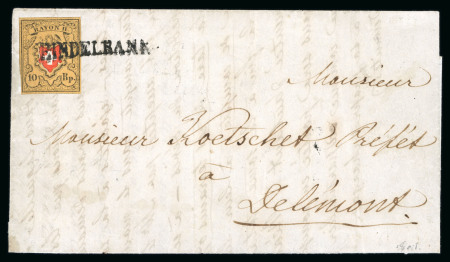 RAYON II
HINDELBANK
10 Rp.
Monsieur
Monsieur Koetschet Préfét
à
Delémont.